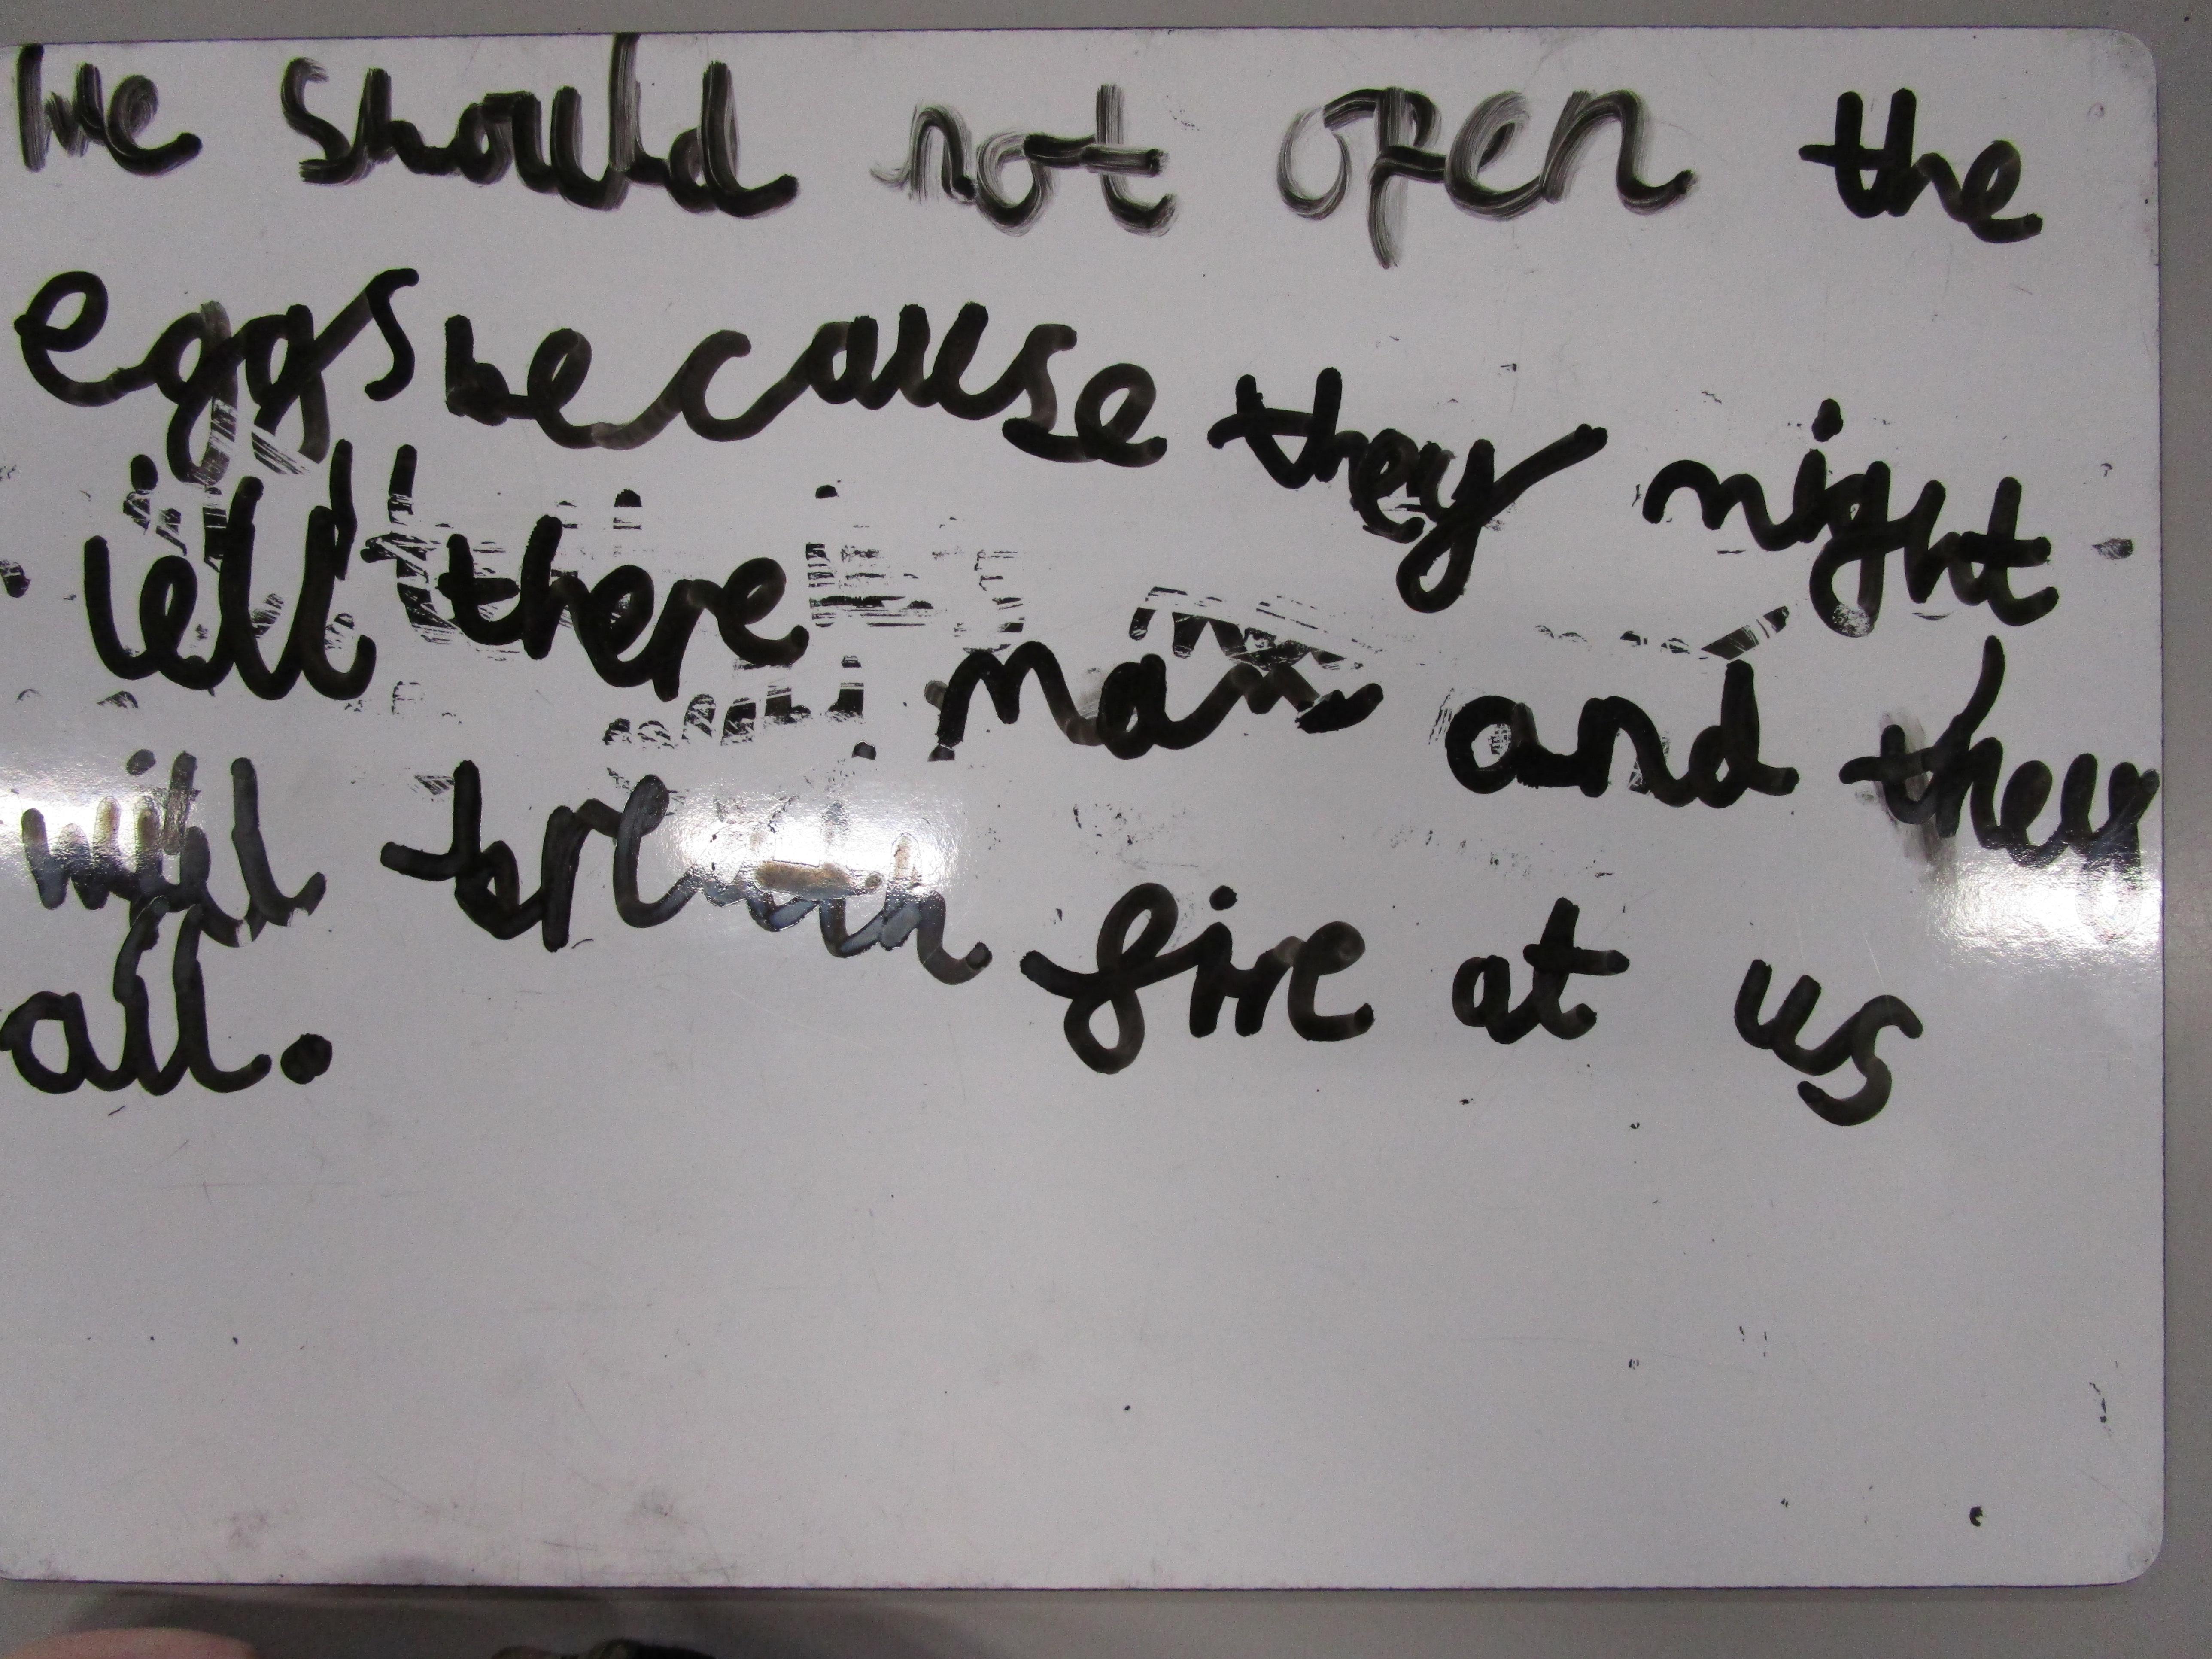 We should not open the
eggs because they might
tell there mam and they
will breath fire at us
all.